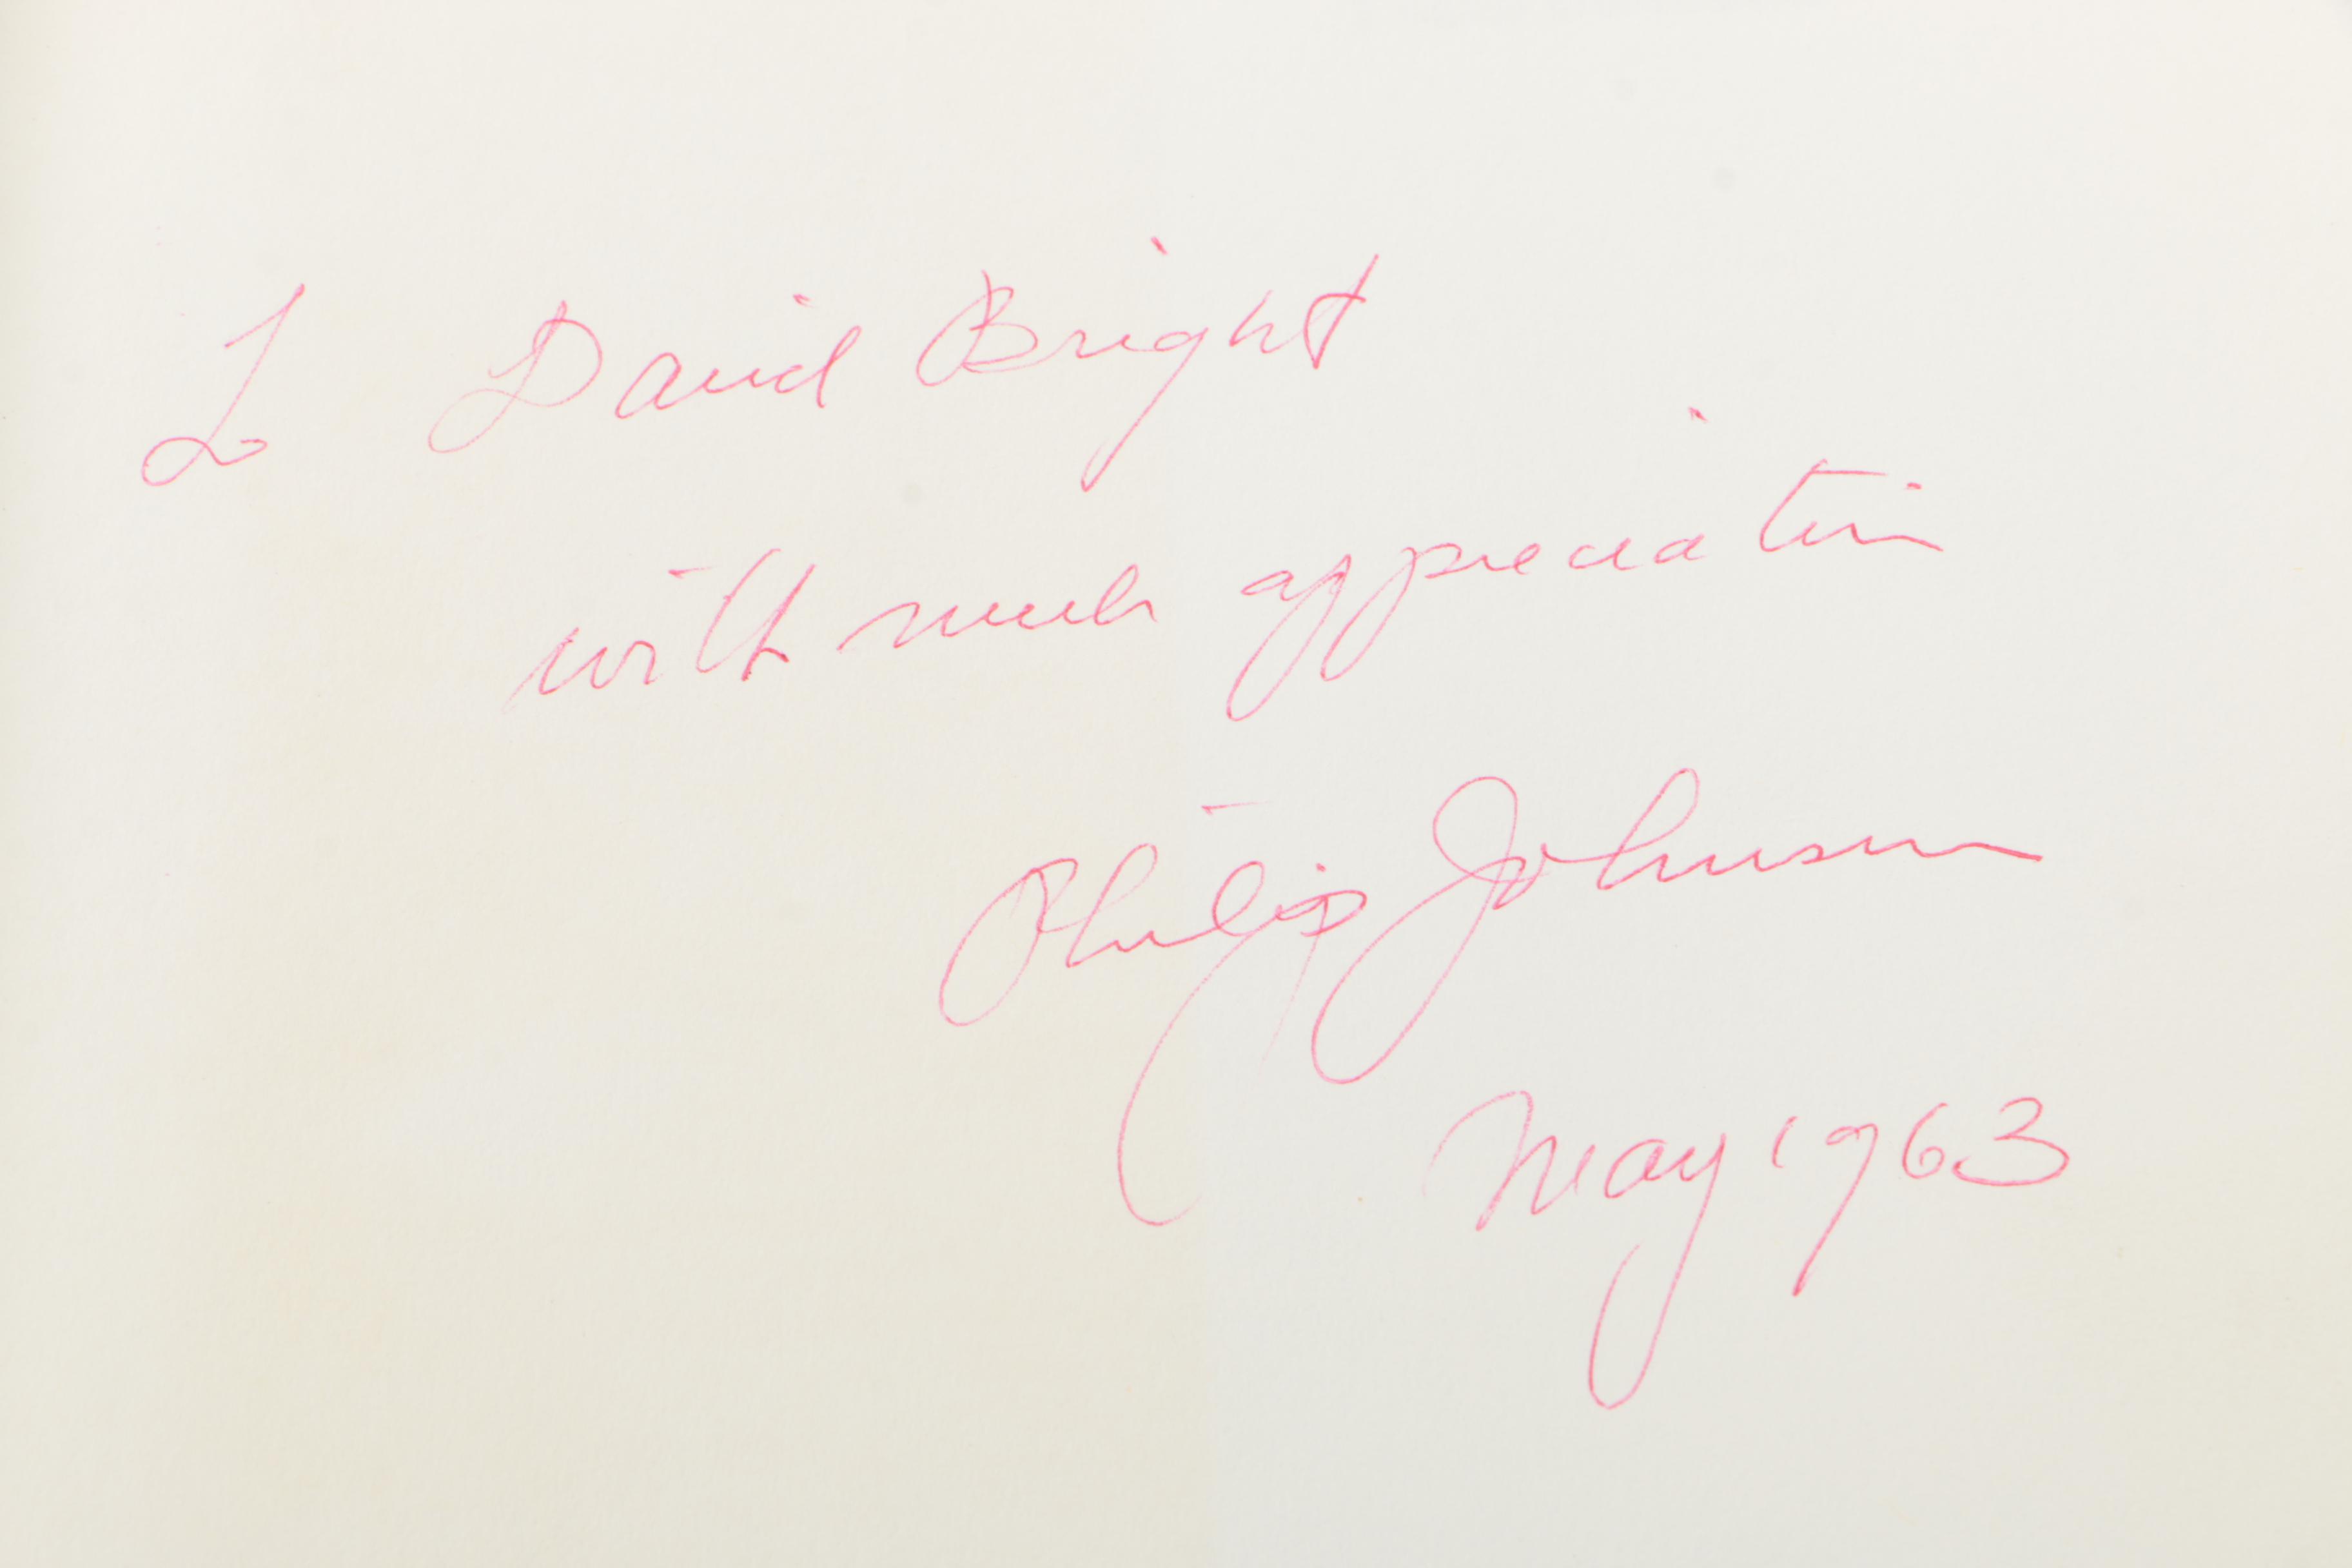 To David Bright
with much appreciation
Philip Johnson
May 1963